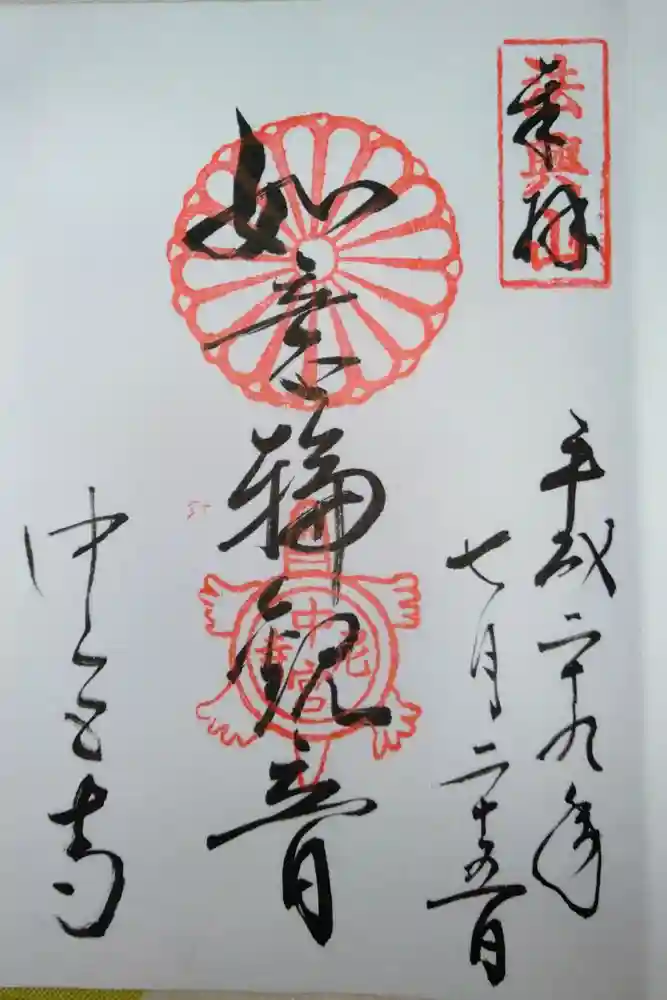 奉拝
法興山
平成二十九年
七月二十五日
如意輪観音
中宮寺